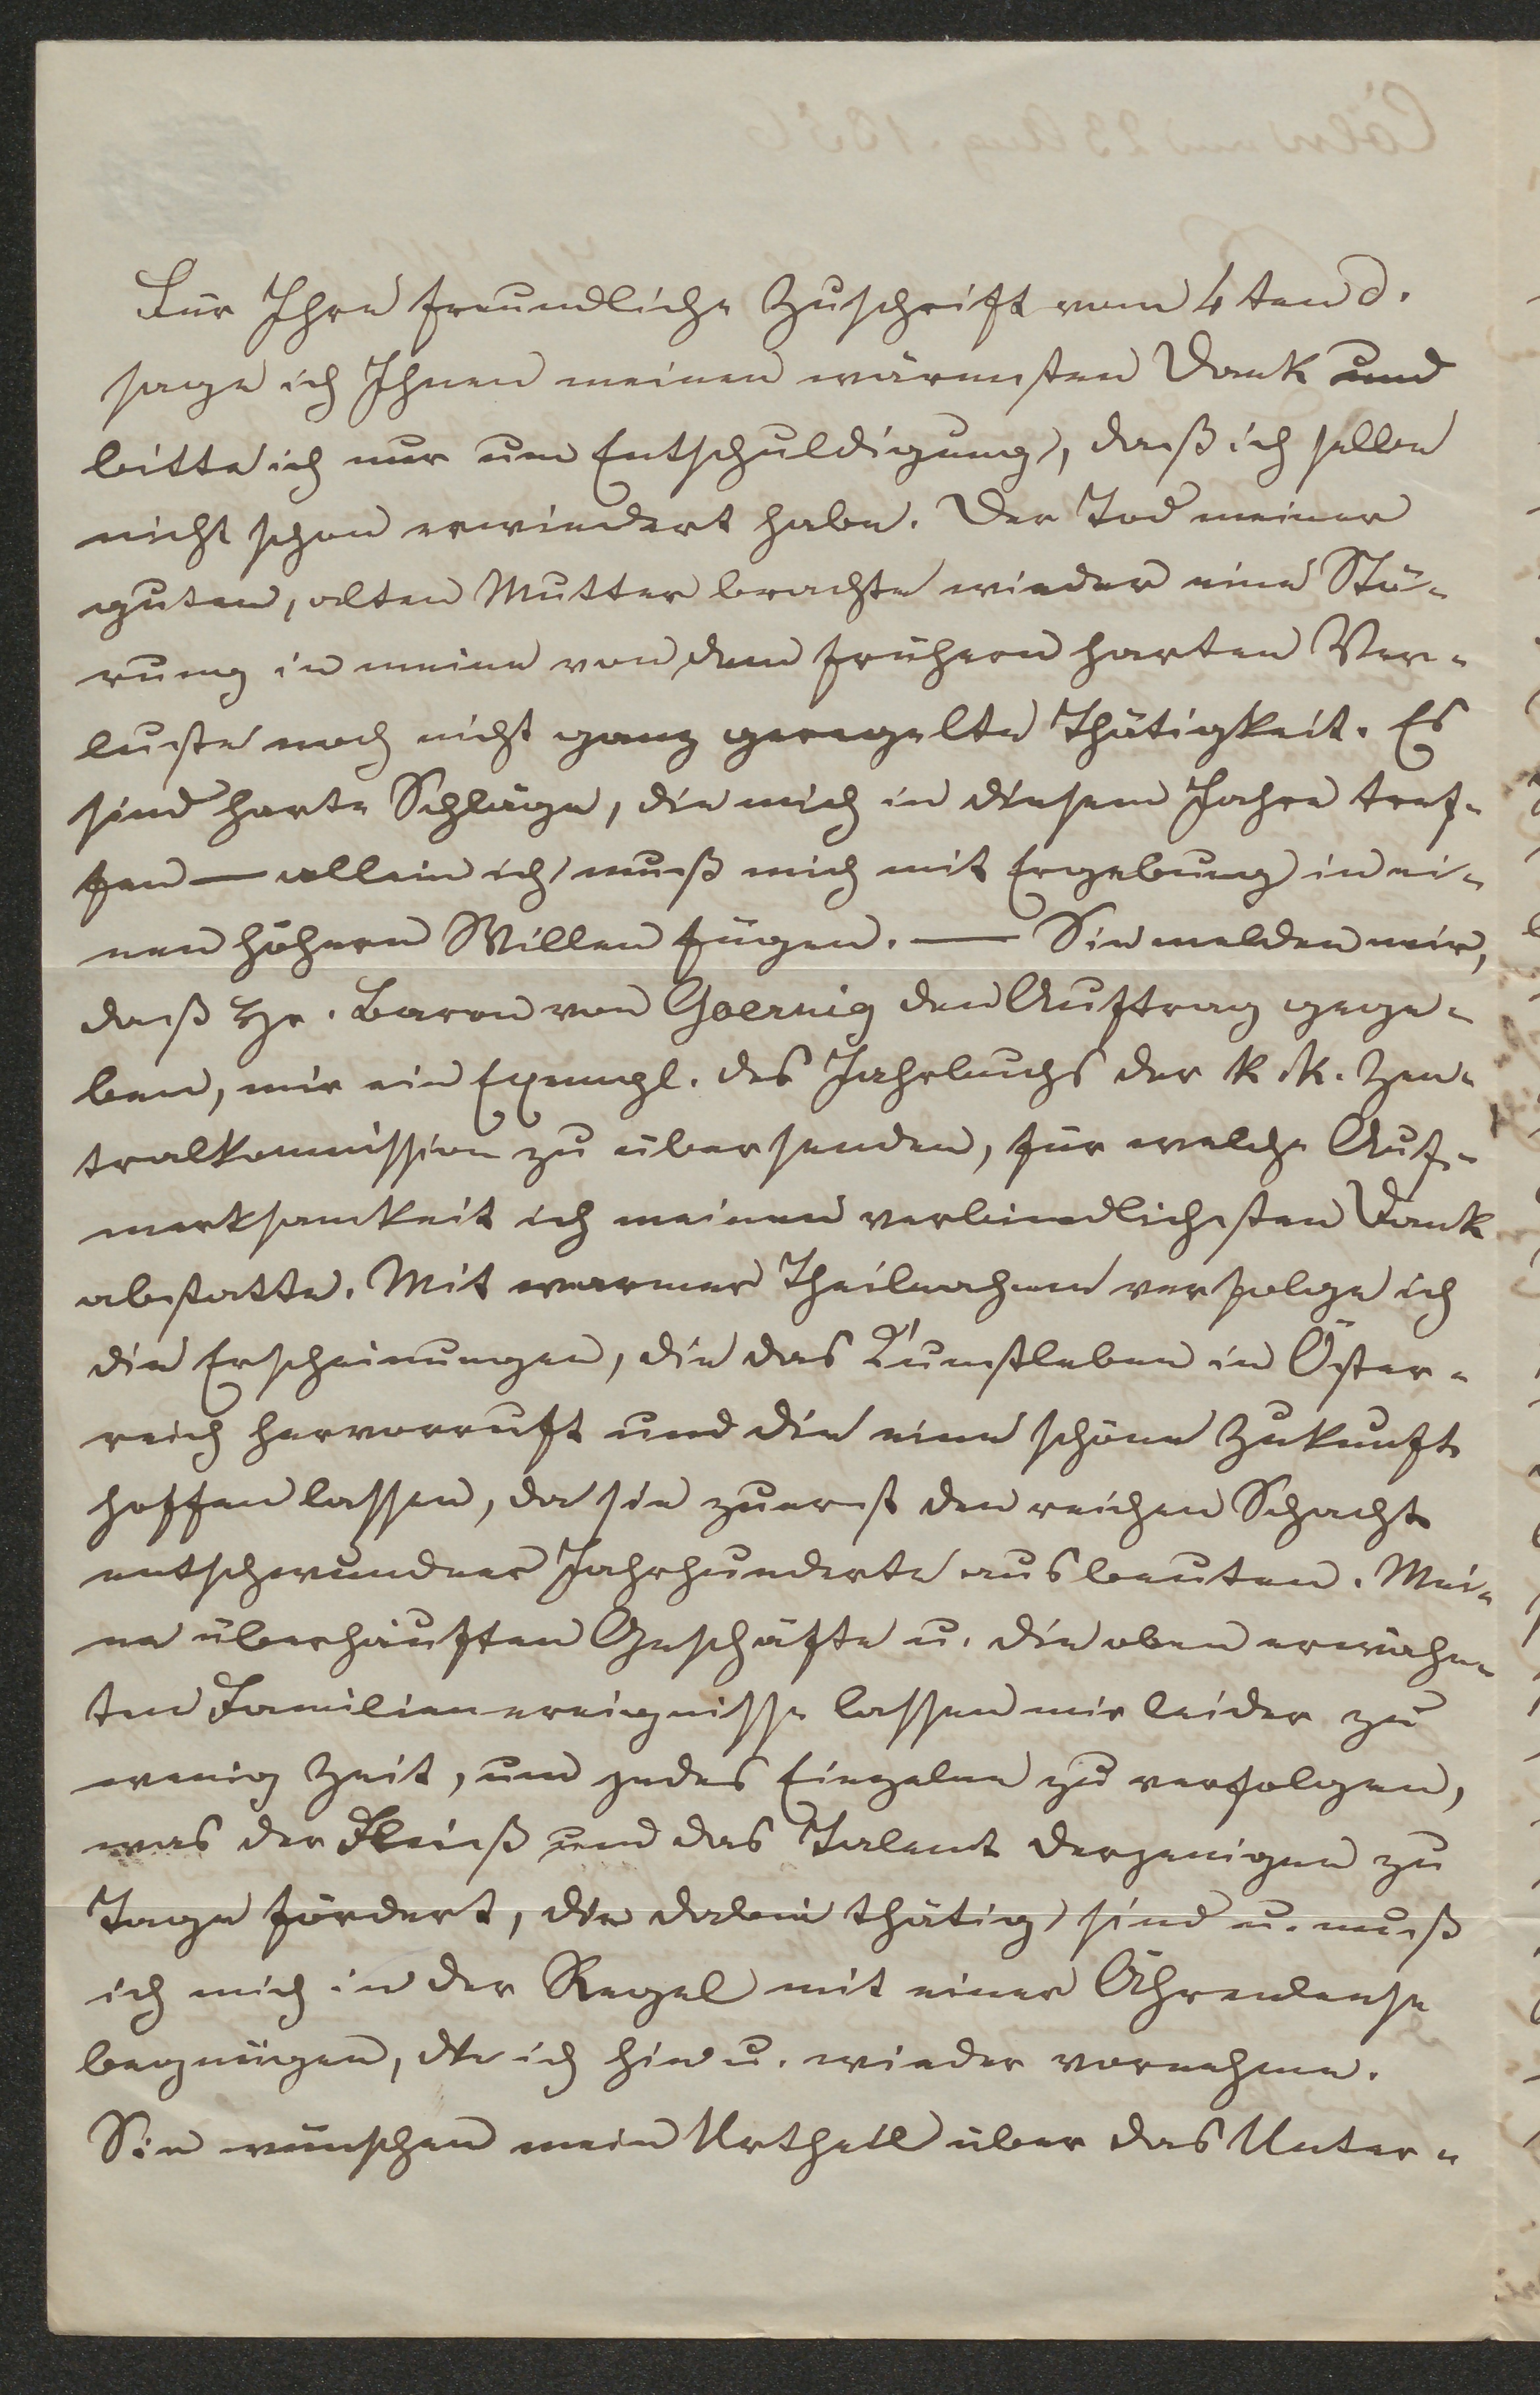 Für Ihre freundliche Zuschrift vom 4ten d.
sage ich Ihnen meinen wärmsten Dank und
bitte ich nur um Entschuldigung, daß ich selbe
nicht schon erwiedert habe. Der Tod meiner
guten, alten Mutter brachte wieder eine Stö-
rung in meine von dem frühern harten Ver-
luste noch nicht ganz geregelte Thätigkeit. Es
sind harte Schläge, die mich in diesem Jahre tref-
fen — allein ich muß mich mit Ergebung in ei-
nen höhern Willen fügen. — Sie melden mir,
daß Hr. Baron von Czoernig den Auftrag gege-
ben, mir ein Exempl. des Jahrbuchs der k. k. Zen-
tralkommission zu übersenden, für welche Auf-
merksamkeit ich meinen verbindlichsten Dank
abstatte. Mit warmer Theilnahme verfolge ich
die Erscheinungen, die das Kunstleben in Öster-
reich hervorruft und die eine schöne Zukunft
hoffen lassen, da sie zuerst den reichen Schacht
entschwundner Jahrhunderte ausbeuten. Mei-
ne überhäuften Geschäfte u. die oben erwähn-
ten Familienereignisse lassen mir leider zu
wenig Zeit, um jedes Einzelne zu verfolgen,
was der Fleiß und das Talent derjenigen zu
Tage fördert, die dabei thätig sind u. muß
ich mich in der Regel mit einer Ährenlese
begnügen, die ich hin u. wieder vornehme.
Sie wünschen mein Urtheil über das Unter-